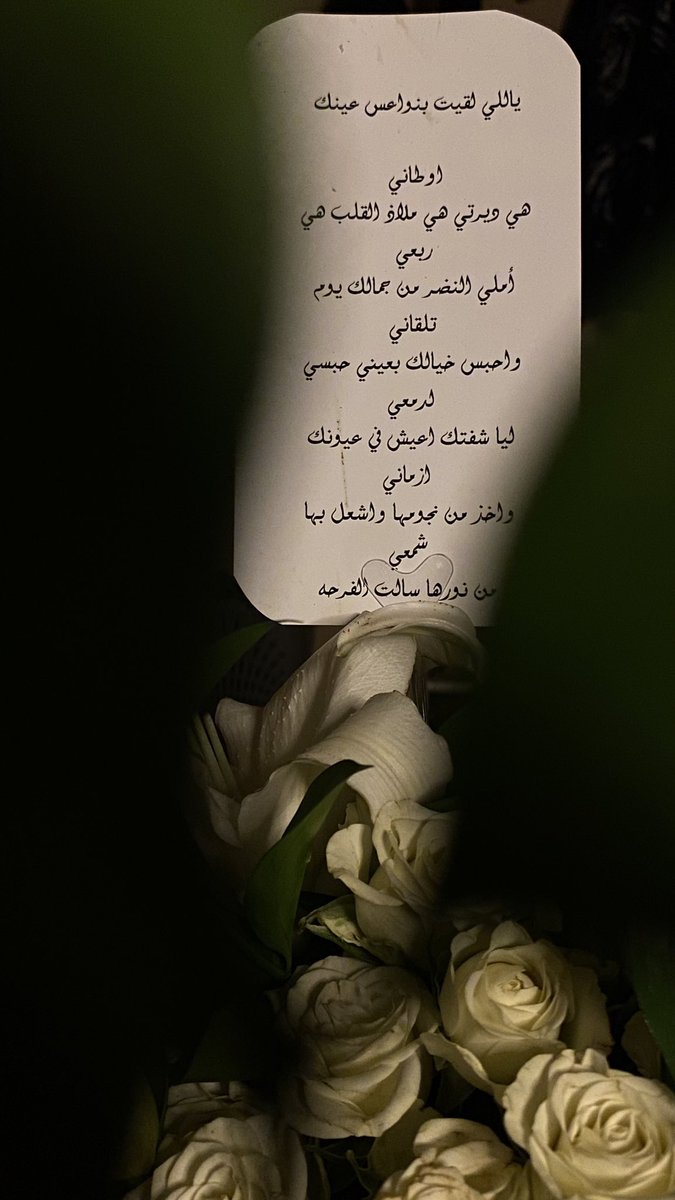 ياللي لقيت بنواعس عينك
اوطاني
هي ديرتي هي ملاذ القلب هي
ربعي
أملي النضر من جمالك يوم
تلقاني
واحبس خيالك بعيني حبسي
لدمعي
ليا شفتك اعيش في عيونك
ازماني
واخذ من نجومها واشعل بها
شمعي
من نورها سالت الفرحه